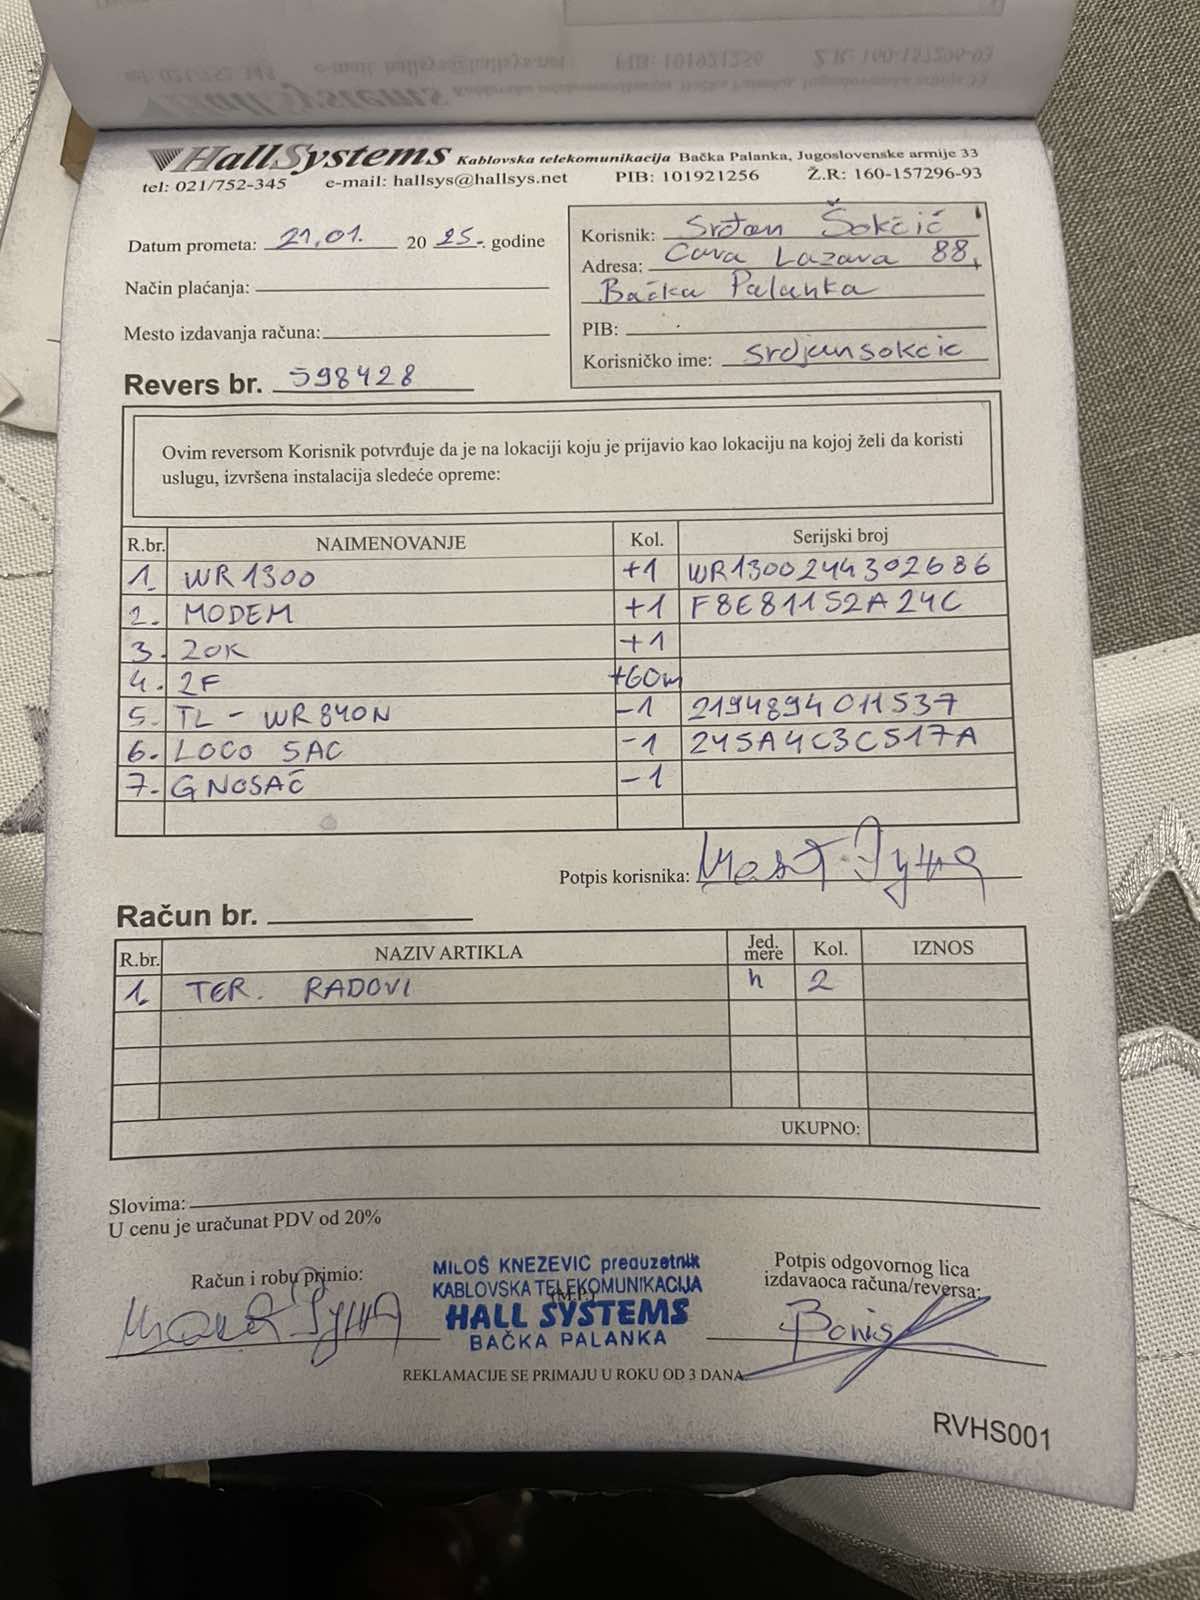 HallSystems Kablovska telekomunikacija Bačka Palanka, Jugoslovenske armije 33
tel: 021/752-345 e-mail: hallsys@hallsys.net PIB: 101921256 Ž.R: 160-157296-93
Datum prometa: 21.01. 20 25. godine
Način plaćanja:
Mesto izdavanja računa:
Revers br. 598428
Korisnik: Srđan Šokčić
Adresa: Cara Lazara 88,
Bačka Palanka
PIB:
Korisničko ime: srdjansokcic
Ovim reversom Korisnik potvrđuje da je na lokaciji koju je prijavio kao lokaciju na kojoj želi da koristi
uslugu, izvršena instalacija sledeće opreme:
R.br. NAIMENOVANJE Kol. Serijski broj
1. WR1300 +1 WR1300244302686
2. MODEM +1 F8E81152A24C
3. 20K +1
4. 2F +60m
5. TL-WR840N -1 2194894011537
6. LOCO 5AC -1 245A4C3C517A
7. GNOSAČ -1
Potpis korisnika:
Račun br.
R.br. NAZIV ARTIKLA Jed. mere Kol. IZNOS
1. TER. RADOVI h 2
UKUPNO:
Slovima:
U cenu je uračunat PDV od 20%
Račun i robu primio:
MILOŠ KNEZEVIĆ preduzetnik
KABLOVSKA TELEKOMUNIKACIJA
(M.P.)
HALL SYSTEMS
BAČKA PALANKA
Potpis odgovornog lica
izdavaoca računa/reversa:
Boris
REKLAMACIJE SE PRIMAJU U ROKU OD 3 DANA
RVHS001